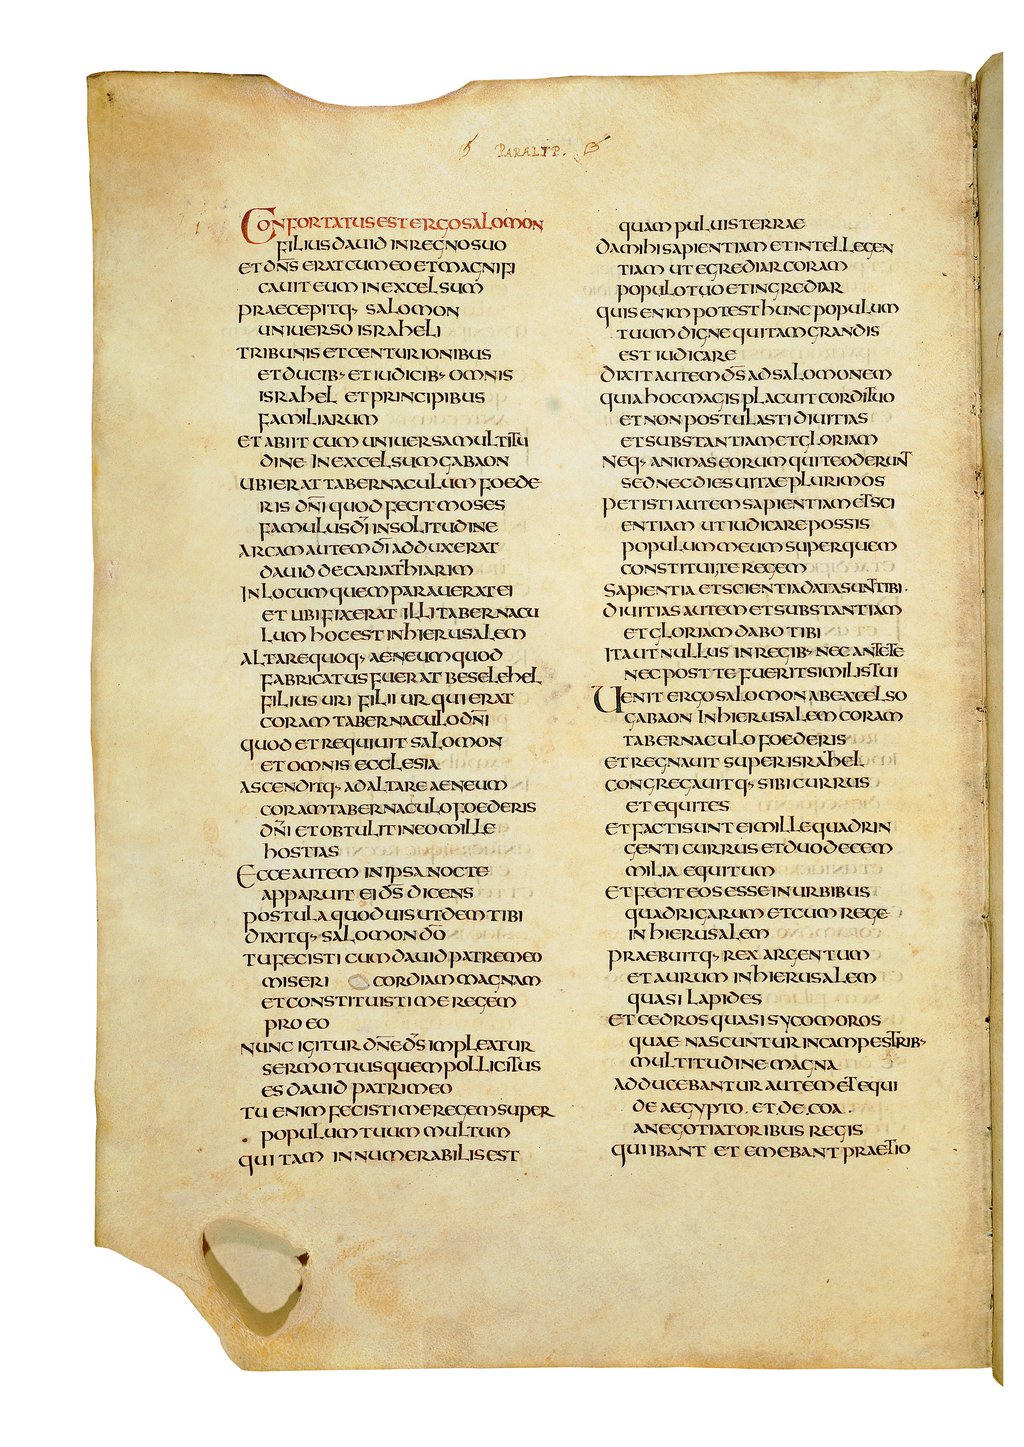 PARALYP.
I
CONFORTATUS EST ERGO SALOMON
FILIUS DAUID IN REGNO SUO
ET DN̅S ERAT CUM EO ET MAGNIFI
CAUIT EUM IN EXCELSUM
PRAECEPITQ· SALOMON
UNIUERSO ISRAHELI
TRIBUNIS ET CENTURIONIBUS
ET DUCIB· ET IUDICIB· OMNIS
ISRAHEL ET PRINCIPIBUS
FAMILIARUM
ET ABIIT CUM UNIUERSA MULTITU
DINE IN EXCELSUM GABAON
UBI ERAT TABERNACULUM FOEDE
RIS DN̅I QUOD FECIT MOSES
FAMULUS DI̅ IN SOLITUDINE
ARCAM AUTEM DI̅ ADDUXERAT
DAUID DE CARIATHIARIM
IN LOCUM QUEM PARAUERAT EI
ET UBI FIXERAT ILLI TABERNACU
LUM HOC EST IN HIERUSALEM
ALTARE QUOQ· AENEUM QUOD
FABRICATUS FUERAT BESELEHEL
FILIUS URI FILII UR QUI ERAT
CORAM TABERNACULO DN̅I
QUOD ET REQUIUIT SALOMON
ET OMNIS ECCLESIA
ASCENDITQ· AD ALTARE AENEUM
CORAM TABERNACULO FOEDERIS
DN̅I ET OBTULIT IN EO MILLE
HOSTIAS
ECCE AUTEM IN IPSA NOCTE
APPARUIT EI DS̅ DICENS
POSTULA QUOD UIS UT DEM TIBI
DIXITQ· SALOMON DO̅
TU FECISTI CUM DAUID PATRE MEO
MISERI CORDIAM MAGNAM
ET CONSTITUISTI ME REGEM
PRO EO
NUNC IGITUR DN̅E DS̅ IMPLEATUR
SERMO TUUS QUEM POLLICITUS
ES DAUID PATRI MEO
TU ENIM FECISTI ME REGEM SUPER
POPULUM TUUM MULTUM
QUI TAM INNUMERABILIS EST
QUAM PULUIS TERRAE
DA MIHI SAPIENTIAM ET INTELLEGEN
TIAM UT EGREDIAR CORAM
POPULO TUO ET INGREDIAR
QUIS ENIM POTEST HUNC POPULUM
TUUM DIGNE QUI TAM GRANDIS
EST IUDICARE
DIXIT AUTEM DS̅ AD SALOMONEM
QUIA HOC MAGIS PLACUIT CORDI TUO
ET NON POSTULASTI DIUITIAS
ET SUBSTANTIAM ET GLORIAM
NEQ· ANIMAS EORUM QUI TE ODERUNT
SED NEC DIES UITAE PLURIMOS
PETISTI AUTEM SAPIENTIAM ET SCI
ENTIAM UT IUDICARE POSSIS
POPULUM MEUM SUPER QUEM
CONSTITUI TE REGEM
SAPIENTIA ET SCIENTIA DATA SUNT TIBI·
DIUITIAS AUTEM ET SUBSTANTIAM
ET GLORIAM DABO TIBI
ITA UT NULLUS IN REGIB· NEC ANTE TE
NEC POST TE FUERIT SIMILIS TUI
UENIT ERGO SALOMON AB EXCELSO
GABAON IN HIERUSALEM CORAM
TABERNACULO FOEDERIS
ET REGNAUIT SUPER ISRAHEL
CONGREGAUITQ· SIBI CURRUS
ET EQUITES
ET FACTI SUNT EI MILLE QUADRIN
GENTI CURRUS ET DUODECEM
MILIA EQUITUM
ET FECIT EOS ESSE IN URBIBUS
QUADRIGARUM ET CUM REGE
IN HIERUSALEM
PRAEBUITQ· REX ARGENTUM
ET AURUM IN HIERUSALEM
QUASI LAPIDES
ET CEDROS QUASI SYCOMOROS
QUAE NASCUNTUR IN CAMPESTRIB·
MULTITUDINE MAGNA
ADDUCEBANTUR AUTEM ET EQUI
DE AEGYPTO. ET DE COA.
A NEGOTIATORIBUS REGIS
QUI IBANT ET EMEBANT PRAETIO